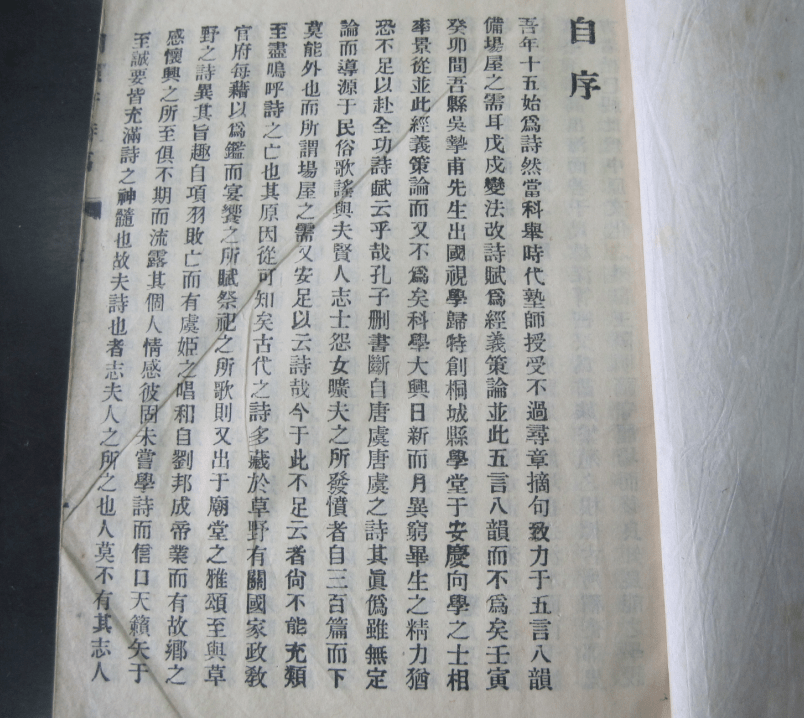 自序
吾年十五始爲詩然當科舉時代塾師授受不過尋章摘句致力于五言八韻
備場屋之需耳戊戌變法改詩賦爲經義策論並此五言八韻而不爲矣壬寅
癸卯間吾縣吳摯甫先生出國視學歸特創桐城縣學堂于安慶向學之士相
率景從並此經義策論而又不爲矣科學大興日新而月異窮畢生之精力猶
恐不足以赴全功詩賦云乎哉孔子删書斷自唐虞唐虞之詩其眞僞雖無定
論而導源于民俗歌謠與夫賢人志士怨女曠夫之所發憤者自三百篇而下
莫能外也而所謂場屋之需又安足以云詩哉今于此不足云者尙不能充類
至盡嗚呼詩之亡也其原因從可知矣古代之詩多藏於草野有關國家政敎
官府每藉以爲鑑而宴饗之所賦祭祀之所歌則又出于廟堂之雅頌至與草
野之詩異其旨趣自項羽敗亡而有虞姬之唱和自劉邦成帝業而有故鄕之
感懷興之所至俱不期而流露其個人情感彼固未嘗學詩而信口天籟矢于
至誠要皆充滿詩之神髓也故夫詩也者志夫人之所之也人莫不有其志人